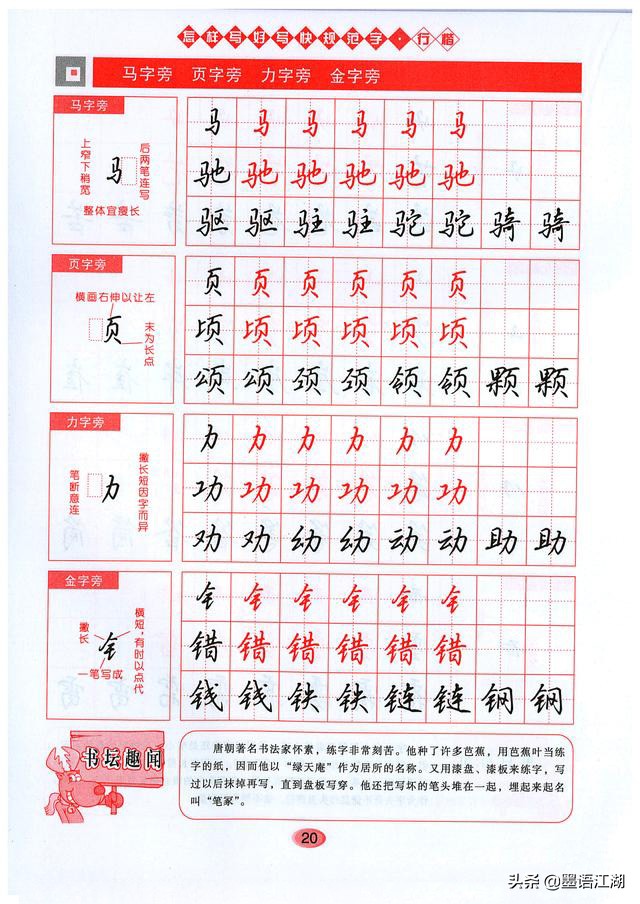 怎样写好写快规范字·行楷
马字旁 页字旁 力字旁 金字旁
马字旁
上窄下稍宽
马
后两笔连写
整体宜瘦长
马 马 马 马 马 马
驰 驰 驰 驰 驰 驰
驱 驱 驻 驻 驼 驼 骑 骑
页字旁
横画右伸以让左
页
末为长点
页 页 页 页 页 页
顷 顷 顷 顷 顷 顷
颂 颂 颈 颈 领 领 颗 颗
力字旁
笔断意连
力
撇长短因字而异
力 力 力 力 力 力
功 功 功 功 功 功
劝 劝 幼 幼 动 动 助 助
金字旁
撇长
横短，有时以点代
一笔写成
钅 钅 钅 钅 钅 钅
错 错 错 错 错 错
钱 钱 铁 铁 链 链 钢 钢
书坛趣闻
唐朝著名书法家怀素，练字非常刻苦。他种了许多芭蕉，用芭蕉叶当练
字的纸，因而他以“绿天庵”作为居所的名称。又用漆盘、漆板来练字，写
过以后抹掉再写，直到盘板写穿。他还把写坏的笔头堆在一起，埋起来起名
叫“笔冢”。
20
头条 @墨语江湖